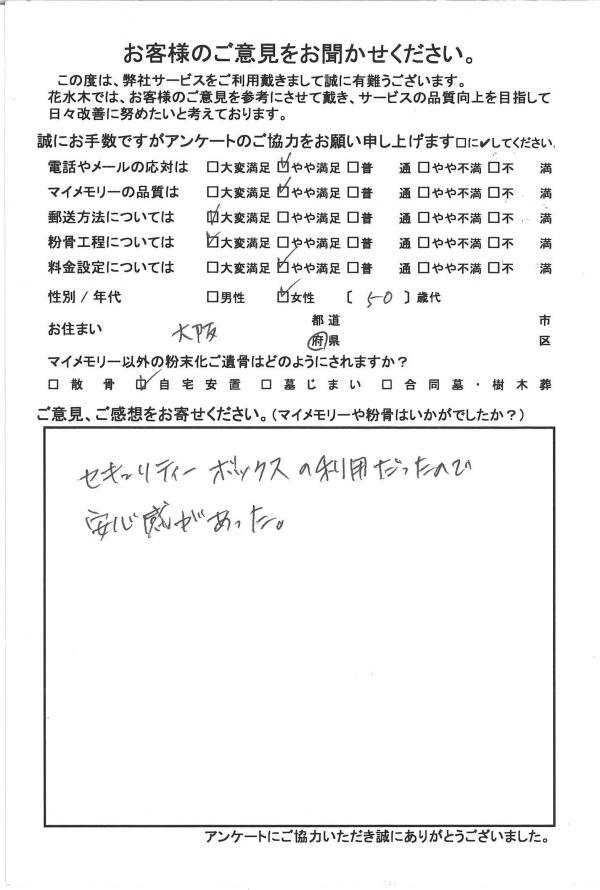 お客様のご意見をお聞かせください。
この度は、弊社サービスをご利用戴きまして誠に有難うございます。
花水木では、お客様のご意見を参考にさせて戴き、サービスの品質向上を目指して
日々改善に努めたいと考えております。
誠にお手数ですがアンケートのご協力をお願い申し上げます□に✔してください。
電話やメールの応対は □大変満足 ☑やや満足 □普 通 □やや不満 □不 満
マイメモリーの品質は □大変満足 ☑やや満足 □普 通 □やや不満 □不 満
郵送方法については ☑大変満足 □やや満足 □普 通 □やや不満 □不 満
粉骨工程については ☑大変満足 □やや満足 □普 通 □やや不満 □不 満
料金設定については □大変満足 ☑やや満足 □普 通 □やや不満 □不 満
性別 / 年代 □男性 ☑女性 〔 50 〕歳代
都道 市
お住まい 大阪 府県 区
マイメモリー以外の粉末化ご遺骨はどのようにされますか？
□ 散 骨 ☑ 自宅安置 □ 墓じまい □ 合同墓・樹木葬
ご意見、ご感想をお寄せください。(マイメモリーや粉骨はいかがでしたか？)
セキュリティーボックスの利用だったので
安心感があった。
アンケートにご協力いただき誠にありがとうございました。